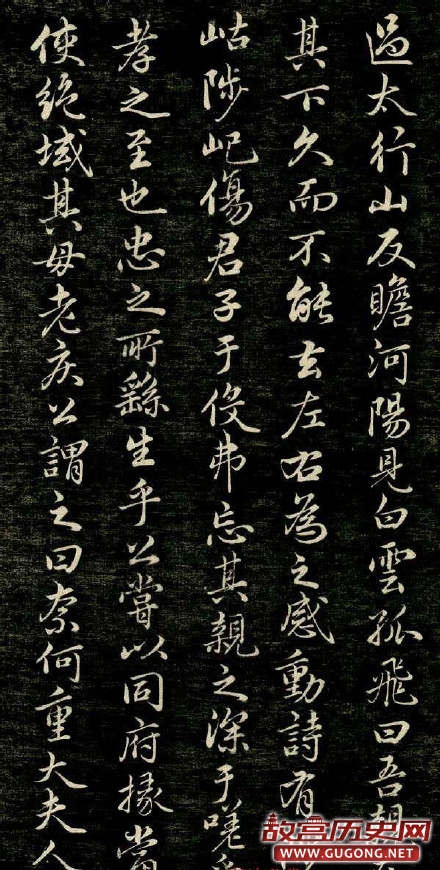 過太行山反瞻河陽見白雲孤飛曰吾親
其下久而不能去左右為之感動詩有
岵陟屺傷君子于役弗忘其親之深于嗟
孝之至也忠之所繇生乎公嘗以同府掾當
使絕域其母老疾公謂之曰奈何重大夫人
故宫历史网
WWW.GUGONG.NET